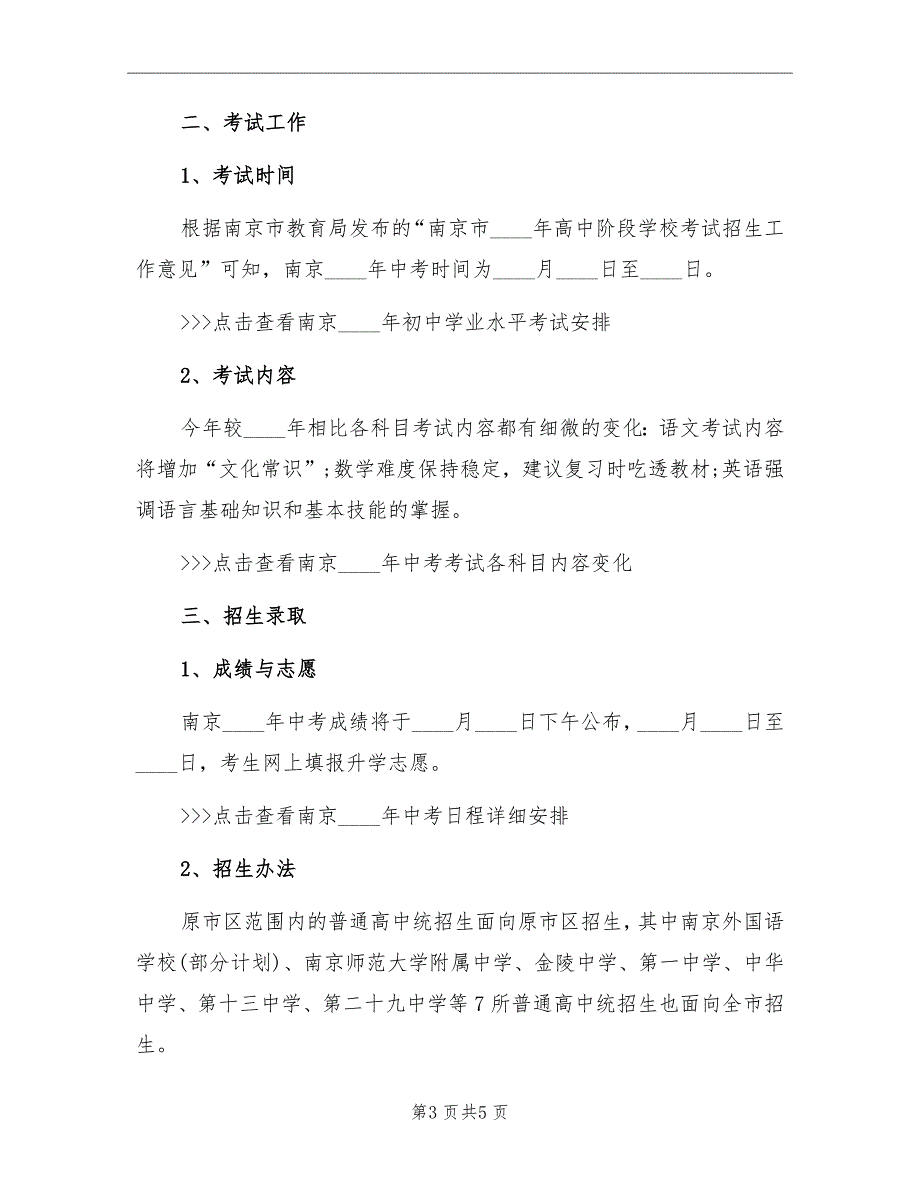 二、考试工作
1、考试时间
根据南京市教育局发布的“南京市____年高中阶段学校考试招生工
作意见”可知，南京____年中考时间为____月____日至____日。
>>>点击查看南京____年初中学业水平考试安排
2、考试内容
今年较____年相比各科目考试内容都有细微的变化：语文考试内容
将增加“文化常识”;数学难度保持稳定，建议复习时吃透教材;英语强
调语言基础知识和基本技能的掌握。
>>>点击查看南京____年中考考试各科目内容变化
三、招生录取
1、成绩与志愿
南京____年中考成绩将于____月____日下午公布，____月____日至
____日，考生网上填报升学志愿。
>>>点击查看南京____年中考日程详细安排
2、招生办法
原市区范围内的普通高中统招生面向原市区招生，其中南京外国语
学校(部分计划)、南京师范大学附属中学、金陵中学、第一中学、中华
中学、第十三中学、第二十九中学等 7 所普通高中统招生也面向全市招
生。
第3 页共5 页